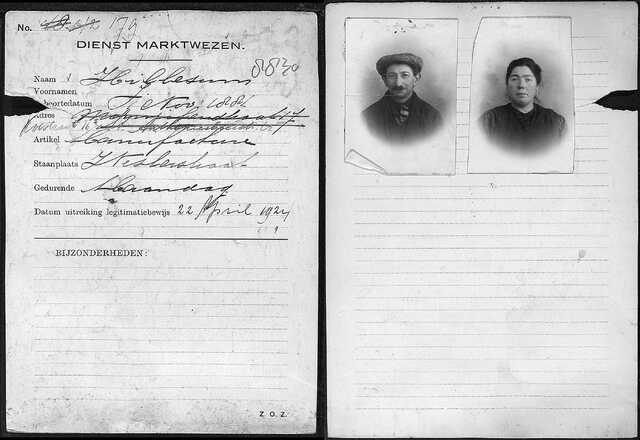 No. 179
DIENST MARKTWEZEN.
8830
Naam
Voornamen
Geboortedatum 7 Nov. 1882
Adres
Artikel Manufacturen
Staanplaats Westerstraat
Gedurende Maandag
Datum uitreiking legitimatiebewijs 22 April 1924
BIJZONDERHEDEN:
Z. O. Z.